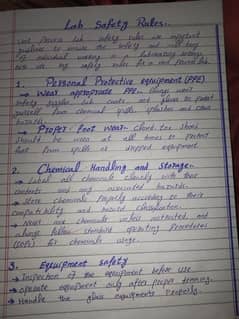 Lab Safety Rules:-
Lab safety rules are important
guidlines to ensure the safety and well being
of individual working in laboratory setting
are safety rules for a
1. Personal Protective equipment (PPE)
→ Wear appropriate PPE:- always wear
safety goggles lab coats and gloves to protect
yourself from chemical spills, splashes and other
hazards.
→ Proper foot wear:- closed-toe shoes
should be worn at all times to protect
feet from spills or dropped equipment.
2. Chemical Handling and Storage:-
→ Label all chemicals clearly with their
contents and any associated hazards.
→ Store chemicals properly according to their
compatability and hazard classification.
→ Never use chemicals unless instructed, and
always follow standard operating procedures
(SOPs) for chemicals usage.
3. Equipment Safety
→ Inspection of the equipment before use
→ operate equipment only after proper training.
→ Handle the glass equipments Properly.